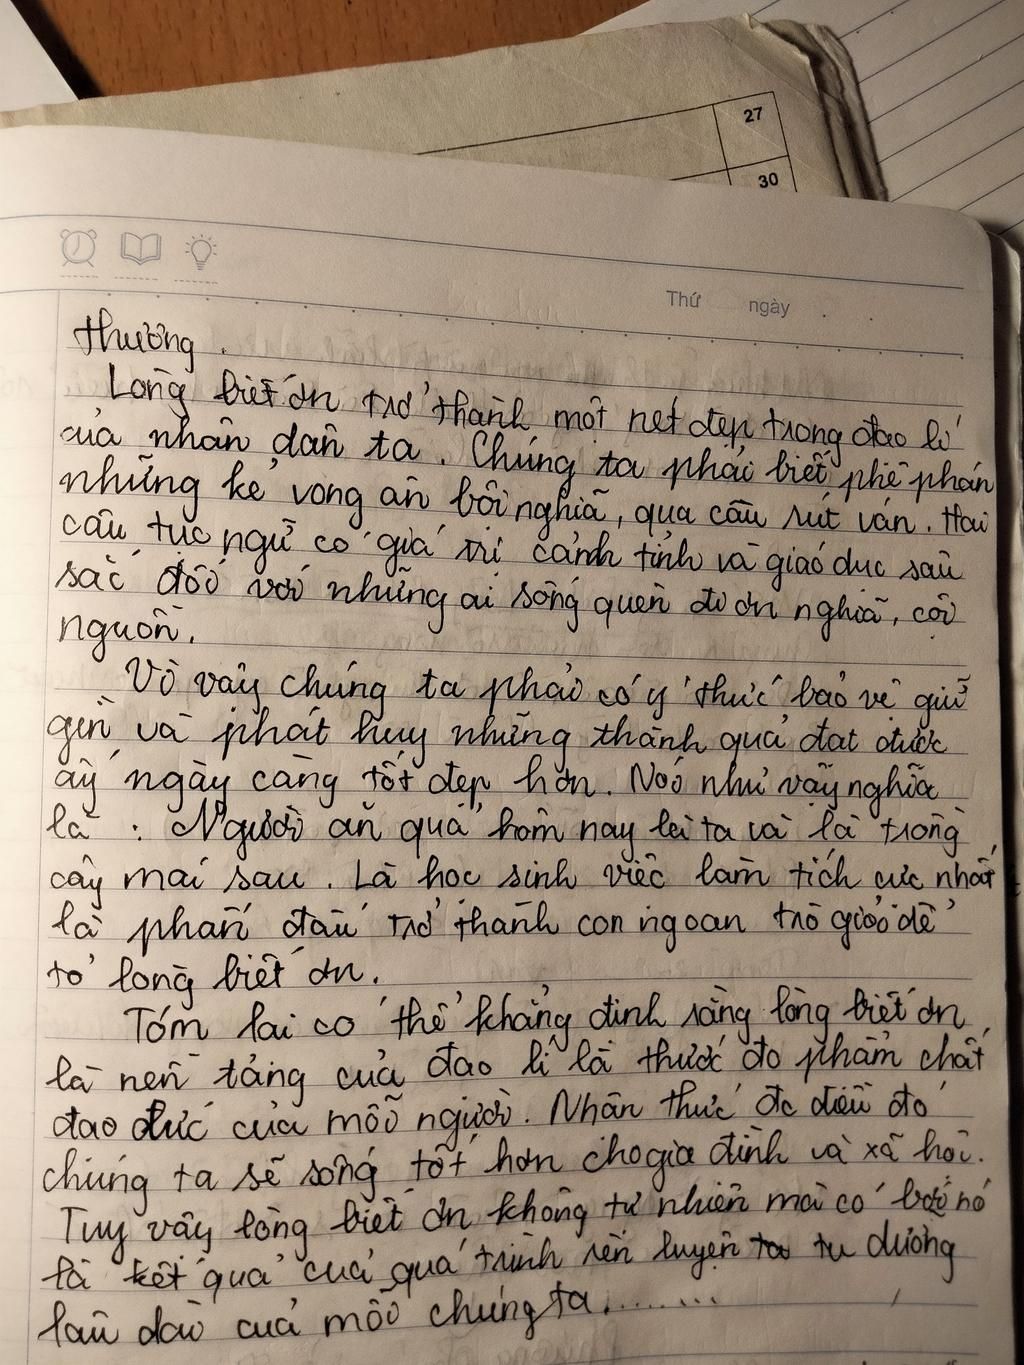 27
30
Thứ ngày
thương.
Lòng biết ơn trở thành một nét đẹp trong đạo lí
của nhân dân ta. Chúng ta phải biết phê phán
những kẻ vong ân bội nghĩa, qua cầu rút ván. Hai
câu tục ngữ có giá trị cảnh tỉnh và giáo dục sâu
sắc đối với những ai sống quên đi ơn nghĩa, cội
nguồn.
Vì vậy chúng ta phải có ý thức bảo vệ giữ
gìn và phát huy những thành quả đạt được
ấy ngày càng tốt đẹp hơn. Nói như vậy nghĩa
là : Người ăn quả hôm nay là ta và là trồng
cây mai sau. Là học sinh việc làm tích cực nhất
là phấn đấu trở thành con ngoan trò giỏi để
tỏ lòng biết ơn.
Tóm lại có thể khẳng định rằng lòng biết ơn
là nền tảng của đạo lí là thước đo phẩm chất
đạo đức của mỗi người. Nhận thức đc điều đó
chúng ta sẽ sống tốt hơn cho gia đình và xã hội.
Tuy vậy lòng biết ơn không tự nhiên mà có bởi nó
là kết quả của quá trình rèn luyện ta tu dưỡng
lâu dài của mỗi chúng ta.........